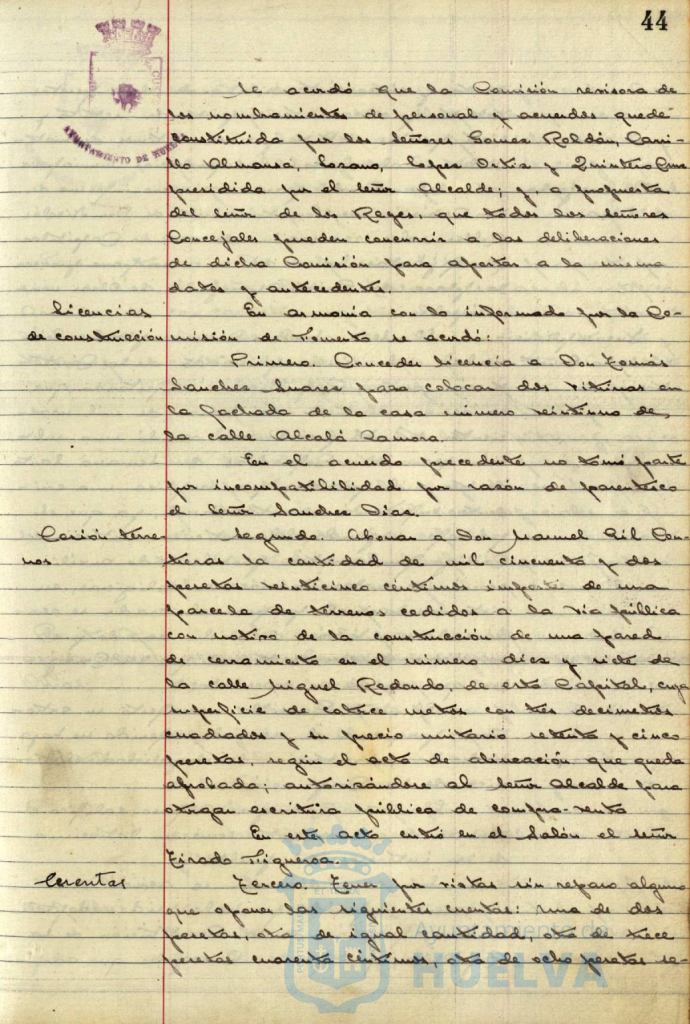 44
AYUNTAMIENTO DE HUELVA
Se acordó que la Comisión revisora de
los nombramientos de personal y acuerdos quede
constituida por los Señores Gomez Roldán, Carri-
llo Almansa, Lozano, Lopez Ortiz y Quintero Cruz
presidida por el Señor Alcalde; y, a propuesta
del Señor de los Reyes, que todos los señores
Concejales pueden concurrir a las deliberaciones
de dicha Comisión para aportar a la misma
datos y antecedentes.
Licencias
de construcción
En armonía con lo informado por la Co-
misión de Fomento se acordó:
Primero. Conceder licencia a Don Tomás
Sanchez Suarez para colocar dos vitrinas en
la fachada de la casa número veintiuno de
la calle Alcalá Zamora.
En el acuerdo precedente no tomó parte
por incompatibilidad por razón de parentesco
el Señor Sanchez Diaz.
Cesión terre-
nos
Segundo. Abonar a Don Manuel Gil Con-
treras la cantidad de mil cincuenta y dos
pesetas veinticinco céntimos importe de una
parcela de terrenos cedidos a la vía pública
con motivo de la construcción de una pared
de cerramiento en el número diez y siete de
la calle Miguel Redondo, de esta Capital, cuya
superficie de catorce metros con tres decimetros
cuadrados y su precio unitario setenta y cinco
pesetas, según el acta de alineación que queda
aprobada; autorizándose al Señor Alcalde para
otorgar escritura pública de compra-venta
En este acto entró en el Salón el Señor
Tirado Figueroa.
Cuentas
Tercero. Tener por vistas sin reparo alguno
que oponer las siguientes cuentas: una de dos
pesetas, otra de igual cantidad, otra de trece
pesetas cuarenta céntimos, otra de ocho pesetas se-
Ayuntamiento de
HUELVA